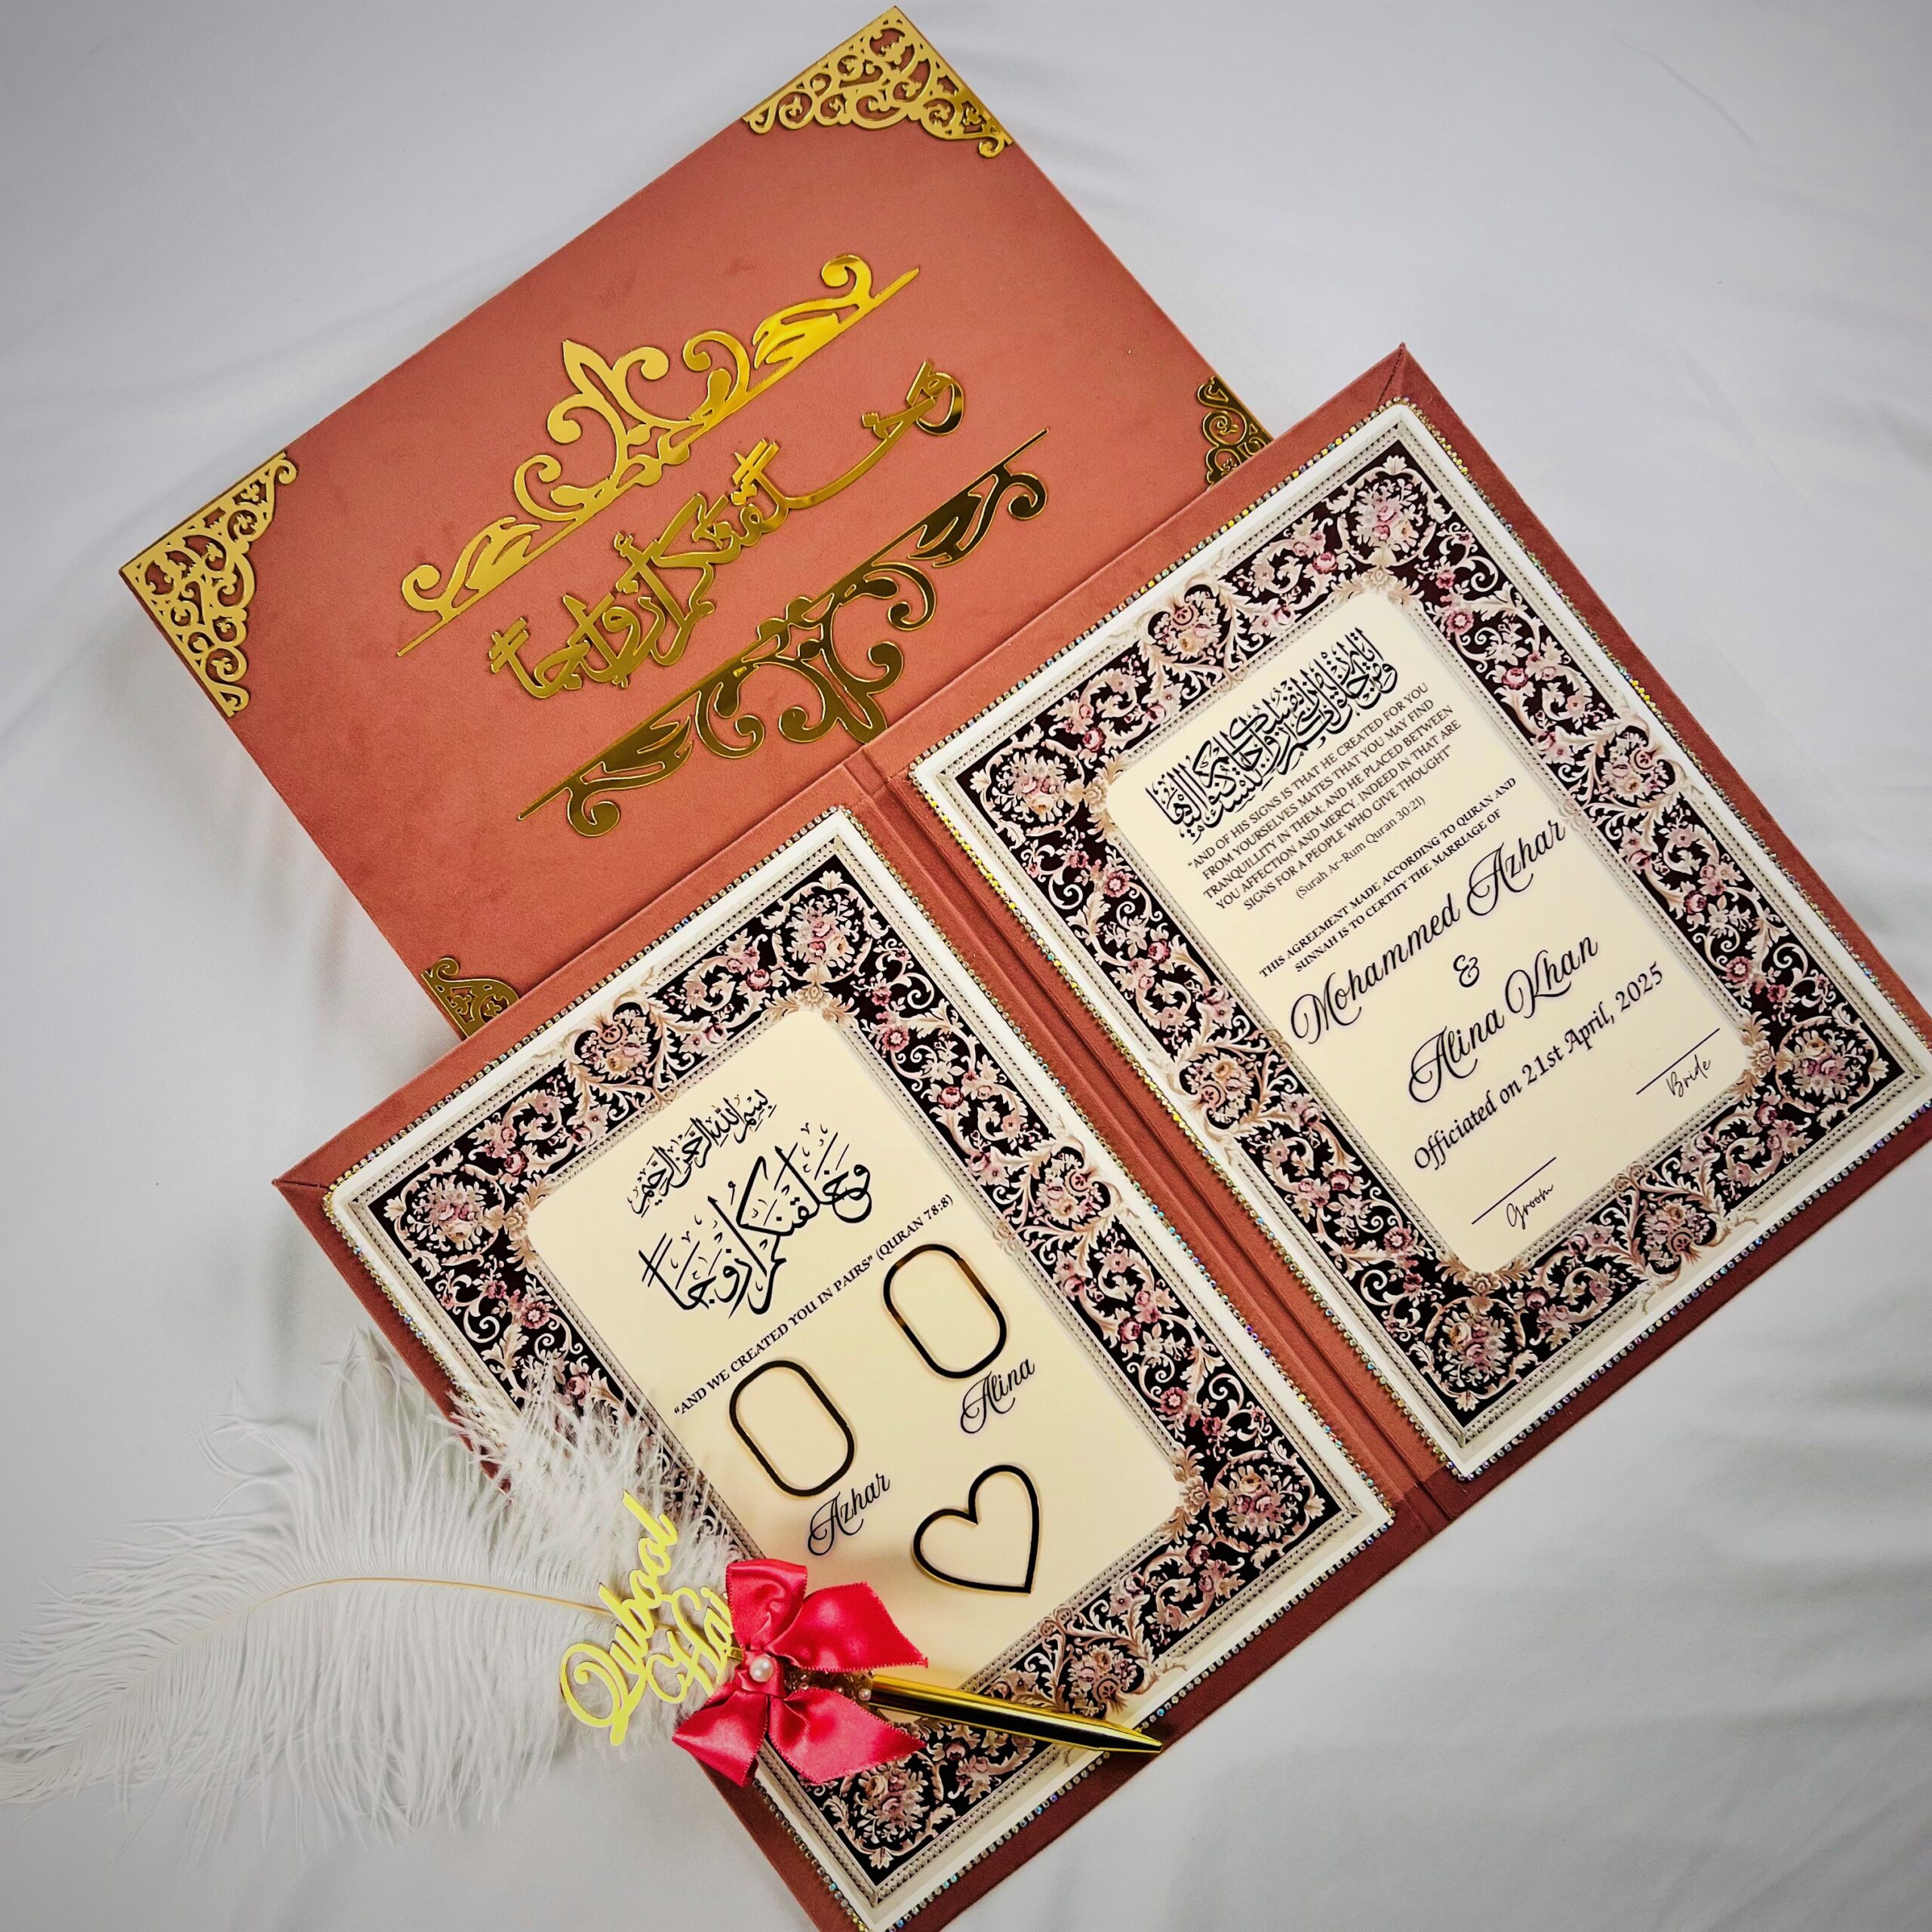 وخلقنكم أزواجا
بسم الله الرحمن الرحيم
وَخَلَقْنَكُمْ أَزْوَجًا
“AND WE CREATED YOU IN PAIRS” (QURAN 78:8)
Azhar
Alina
Qubool
Hai
ومن آياته أن خلق لكم من أنفسكم أزواجا لتسكنوا إليها
“AND OF HIS SIGNS IS THAT HE CREATED FOR YOU
FROM YOURSELVES MATES THAT YOU MAY FIND
TRANQUILLITY IN THEM; AND HE PLACED BETWEEN
YOU AFFECTION AND MERCY. INDEED IN THAT ARE
SIGNS FOR A PEOPLE WHO GIVE THOUGHT”
(Surah Ar-Rum Quran 30:21)
THIS AGREEMENT MADE ACCORDING TO QURAN AND
SUNNAH IS TO CERTIFY THE MARRIAGE OF
Mohammed Azhar
&
Alina Khan
Officiated on 21st April, 2025
Groom
Bride